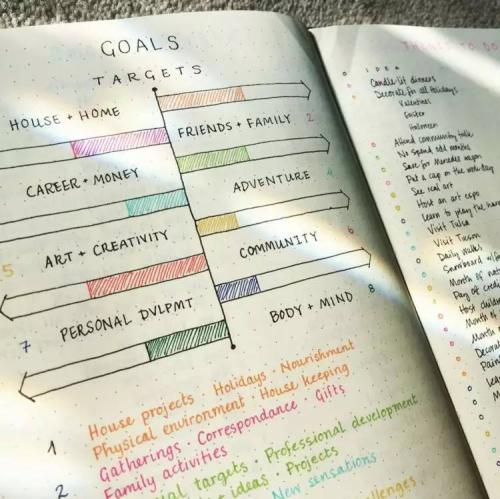 GOALS
TARGETS
HOUSE + HOME
FRIENDS + FAMILY 2
CAREER + MONEY
ADVENTURE 4
5 ART + CREATIVITY
COMMUNITY 6
7 PERSONAL DVLPMT
BODY + MIND 8
1 House projects · Holidays · Nourishment
Physical environment · House keeping
2 Gatherings · Correspondance · Gifts
Family activities
targets · Professional development
ideas · Projects
New sensations
THINGS TO DO
IDEA
Candle-lit dinners
Decorate for all holidays
Valentines
Easter
Halloween
Attend community talk
No spend odd months
Save for Mercedes wagon
Put a cap on the
See real art
Host an art expo
Learn to play the
Visit Tulsa
Visit Tucson
Daily walks
Snowboard
Month of
Pay of
Host
Month of
Month